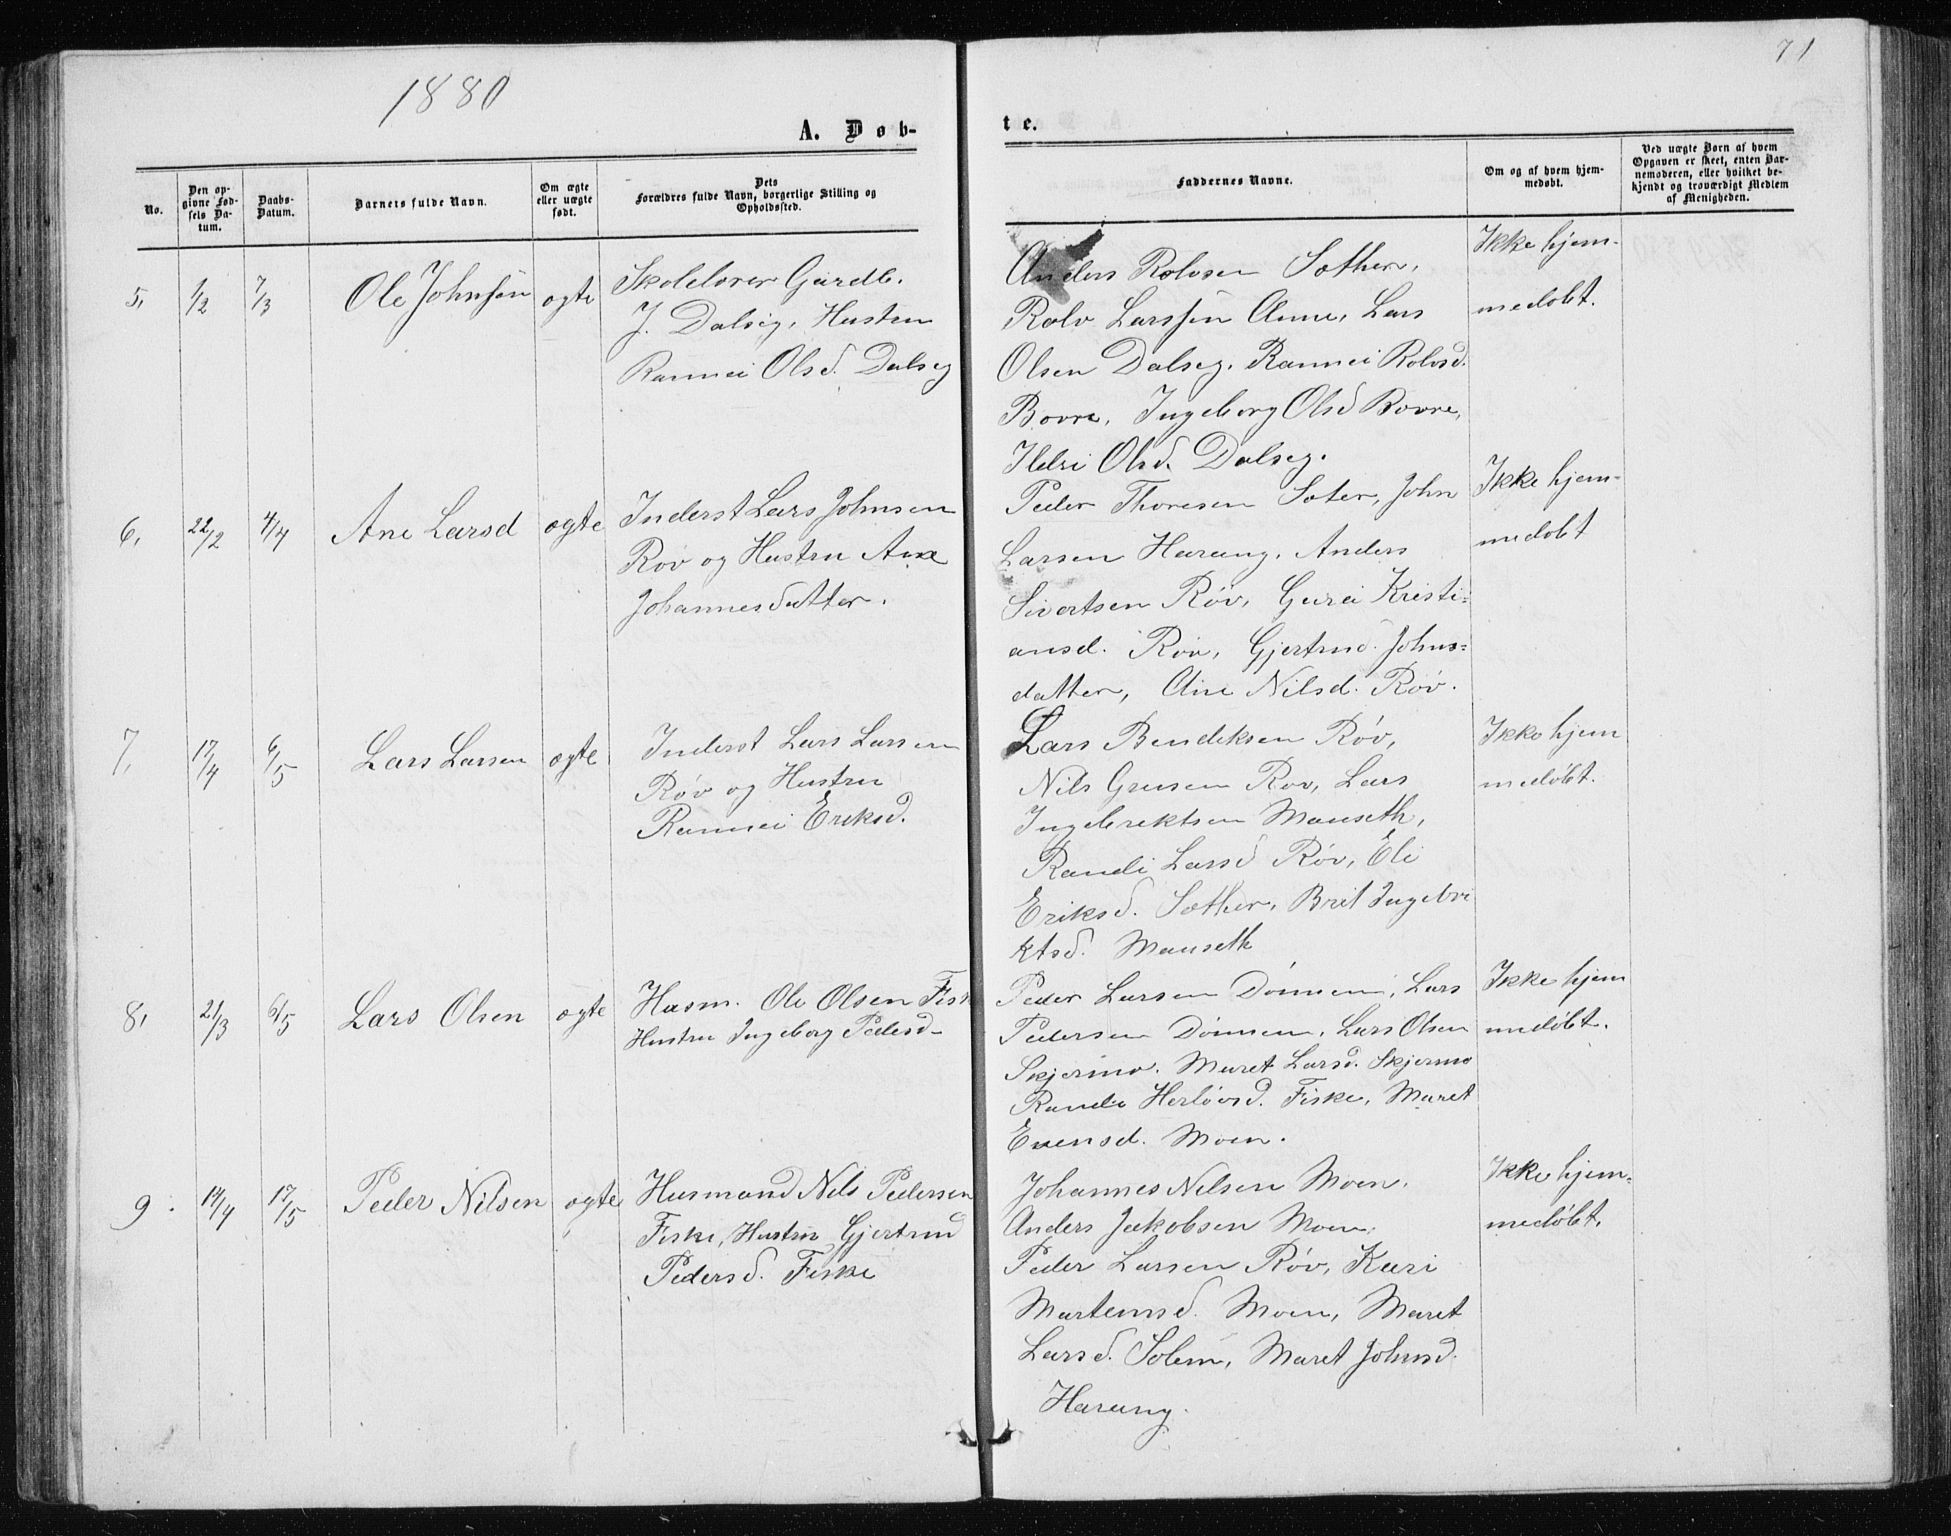 1880
71
A. Døb-
te.
No.
Den op-
givne Fød-
sels Da-
tum.
Daabs-
Datum.
Barnets fulde Navn.
Om ægte
eller uægte
født.
Dets
Forældres fulde Navn, borgerlige Stilling og
Opholdssted.
Faddernes Navne.
Om og af hvem hjem-
medøbt.
Ved uægte Børn af hvem
Opgaven er skeet, enten Bar-
nemoderen, eller hvilket be-
kjendt og troværdigt Medlem
af Menigheden.
5, 1/2 7/3 Ole Johnsen ægte
Skolelærer Gaardb.
J. Dalseg, Hustru
Rannei Olsd. Dalseg
Anders Rolvsen Sæther,
Rolv Larssen Aune, Lars
Olsen Dalseg. Rannei Rolvsd.
Bovre, Ingeborg Olsd Bovre,
Olsd. Dalseg.
Ikke hjem-
medøbt.
6, 22/2 4/4 Ane Larsd ægte
Inderst Lars Johnsen
Røv og Hustru Ane
Johannesdatter.
Peder Thoresen Sæter, John
Larsen Harang, Anders
Sivertsen Røv, Gurei Kristi=
ansd. Røv, Gjertrud Johns=
datter, Ane Nilsd. Røv.
Ikke hjem-
medøbt
7, 17/4 6/5 Lars Larsen ægte
Inderst Lars Larsen
Røv og Hustru
Rannei Eriksd.
Lars Bendeksen Røv,
Nils Røv, Lars
Ingebrektsen Mauseth,
Randi Larsd Røv, Eli
Eriksd. Sæther, Brit Ingebri
ktsd. Mauseth
Ikke hjem
medøbt.
8, 21/3 6/5 Lars Olsen ægte
Husm. Ole Olsen Fisk
Hustru Ingeborg Pedersd-
Peder Larsen Dønnem, Lars
Pedersen Dønnem, Lars Olsen
Skjermo. Maret Larsd. Skjermo
Randi Herløvsd. Fiske, Maret
Evensd. Moen.
Ikke hjem
medøbt.
9. 14/4 17/5 Peder Nilsen ægte
Husmand Nils Pedersen
Fiske, Hustru Gjertrud
Pedersd. Fiske
Johannes Nilsen Moen.
Anders Jakobsen Moen.
Peder Larsen Røv, Kari
Martensd. Moen, Maret
Larsd. Solem, Maret Johnsd.
Harang.
Ikke hjem-
medøbt.